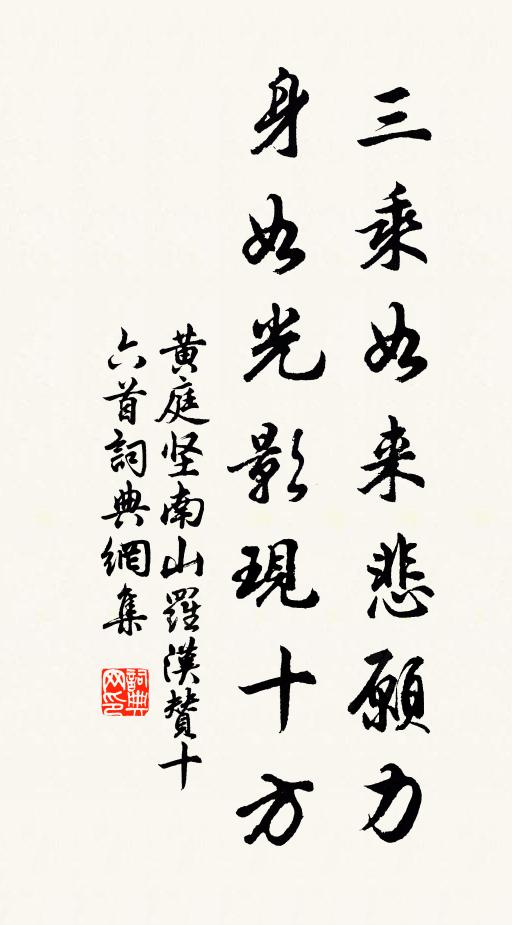 三乘如来悲願力
身如光影現十方
黄庭坚南山羅漢賛十
六首詞典網集
詞典网印